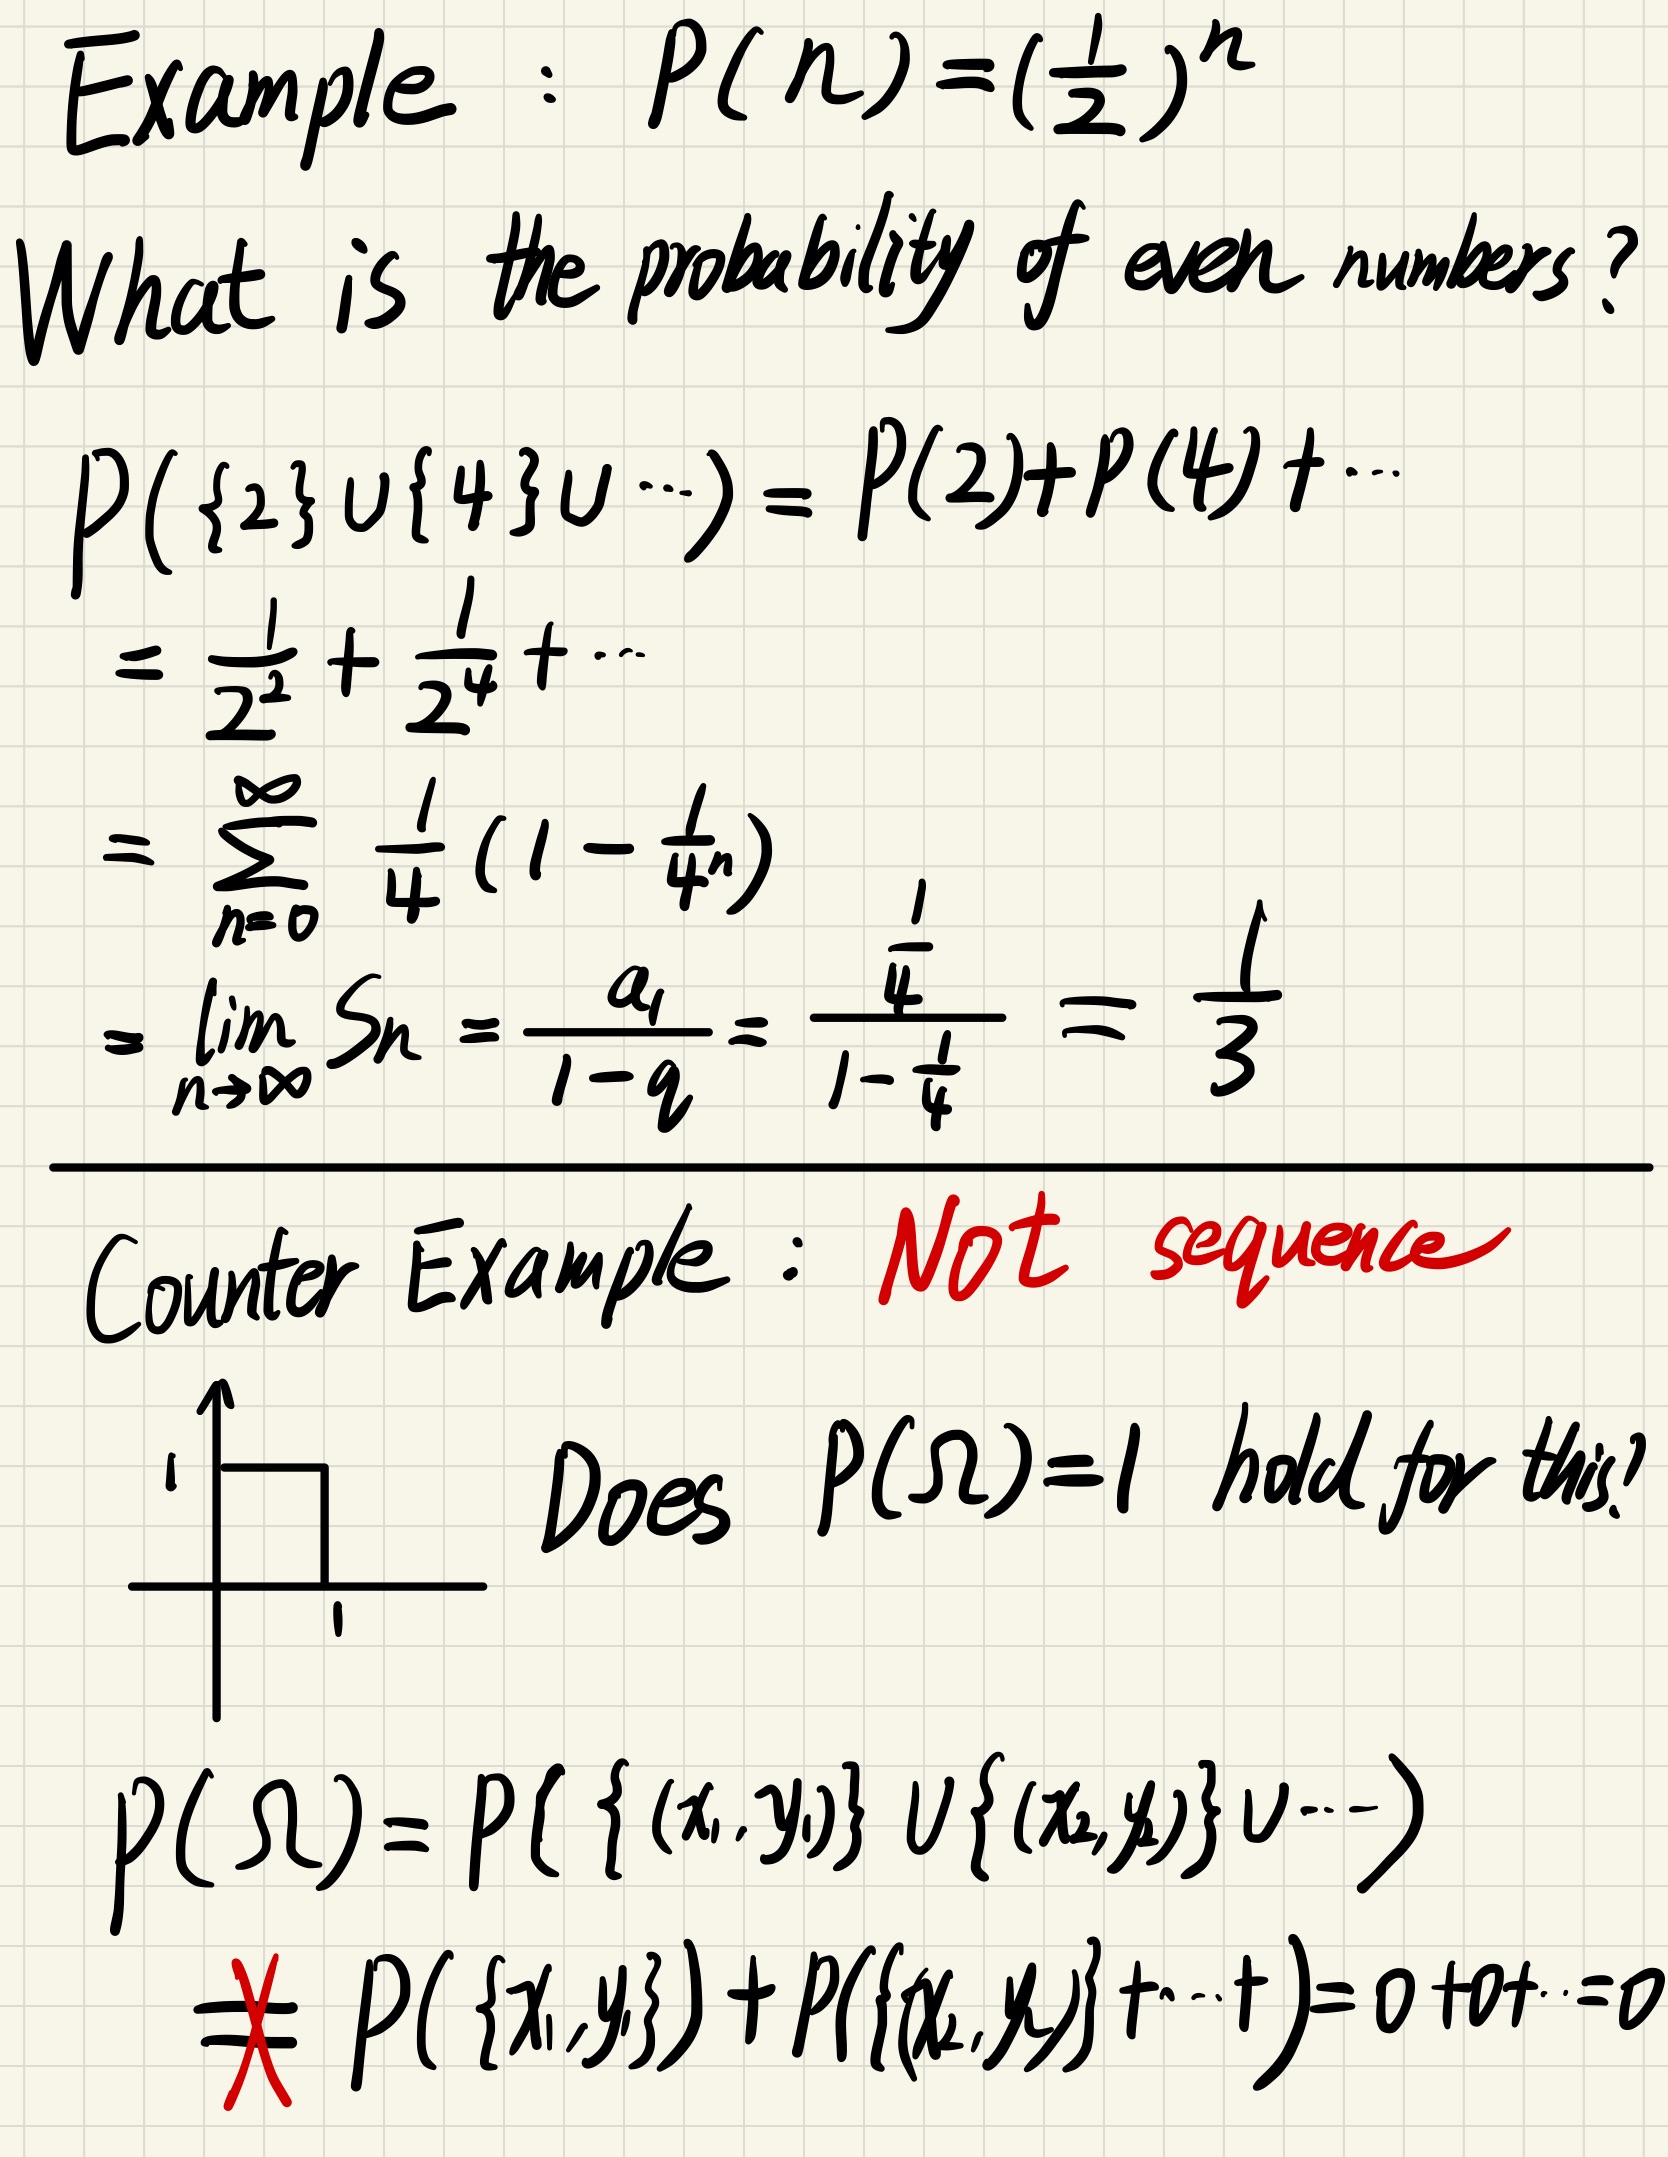 Example : P(n) = (1/2)^n
What is the probability of even numbers?
P({2} ∪ {4} ∪ ···) = P(2) + P(4) + ···
= 1/2^2 + 1/2^4 + ···
= ∑_{n=0}^{∞} 1/4 (1 - 1/4^n)
= lim_{n→∞} Sn = a₁/(1-q) = (1/4)/(1 - 1/4) = 1/3
Counter Example : Not sequence
1
Does P(Ω) = 1 hold for this?
1
P(Ω) = P( {(x₁, y₁)} ∪ {(x₂, y₂)} ∪ ··· )
= P( {x₁, y₁}) + P({(x₂, y₂)} + ··· + ) = 0 + 0 + ·· = 0